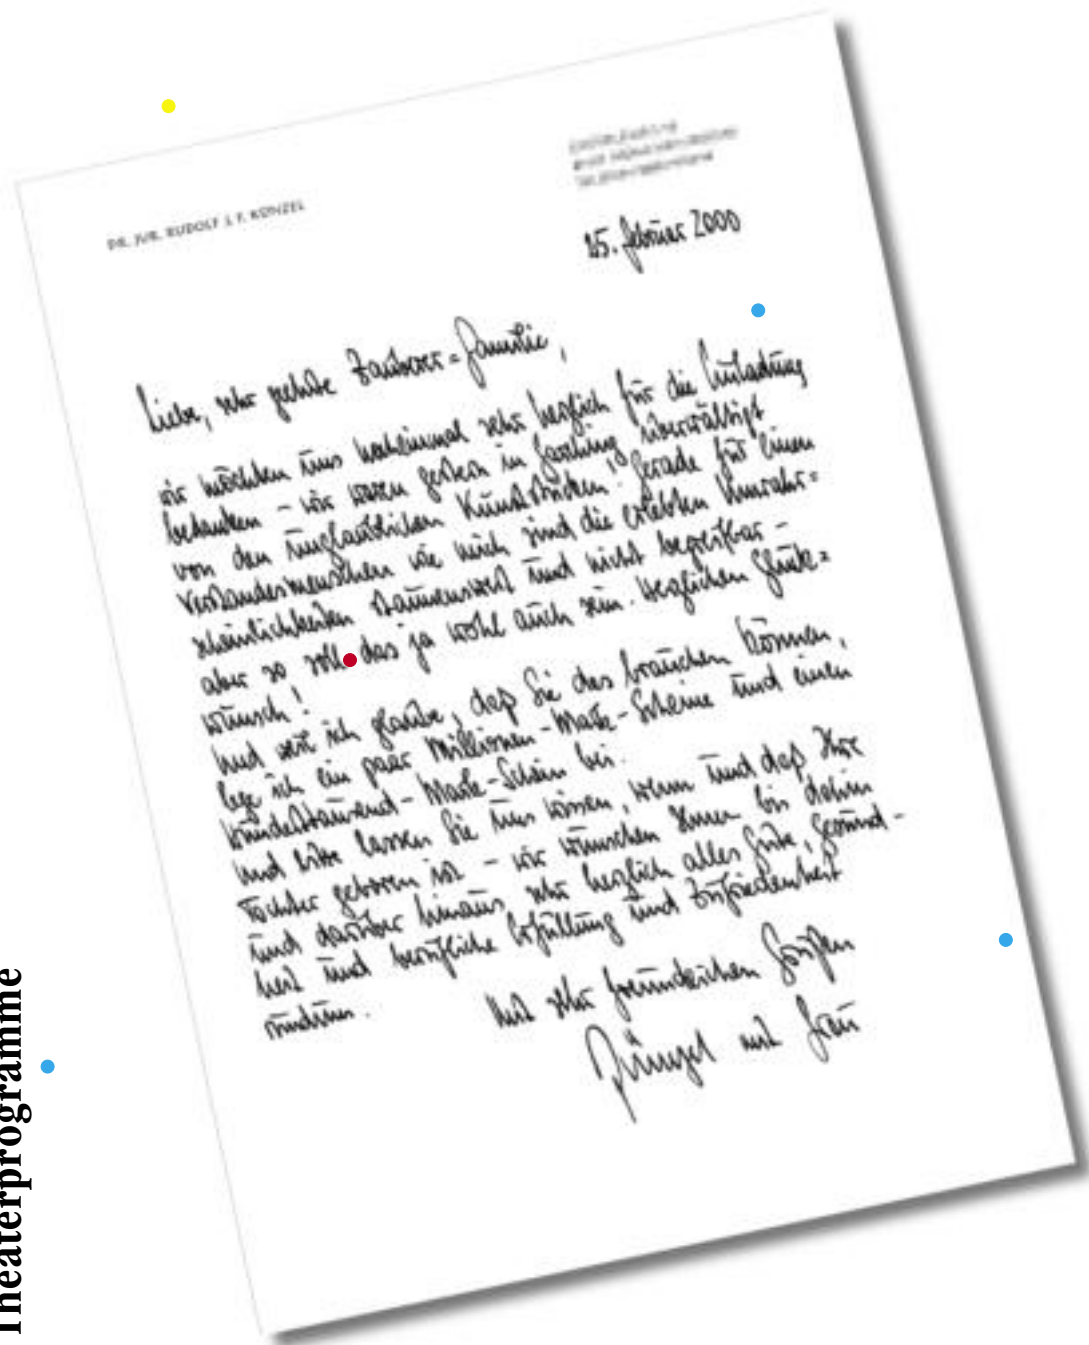 DR. JUR. RUDOLF J. F. KÜNZEL
25. Februar 2000
Liebe, sehr geehrte Zauberer=Familie,
wir möchten uns nocheinmal sehr herzlich für die Einladung
bedanken – wir waren gestern in Garching überwältigt
von den unglaublichen Kunststücken! Gerade für einen
Verstandesmenschen wie mich sind die erlebten Unwahr=
scheinlichkeiten staunenswert und nicht begreifbar –
aber so soll das ja wohl auch sein. Herzlichen Glück=
wunsch!
Und weil ich glaube, daß Sie das brauchen können,
lege ich ein paar Millionen-Mark-Scheine und einen
Hunderttausend-Mark-Schein bei.
Und bitte lassen Sie uns wissen, wenn und daß Ihre
Tochter geboren ist – wir wünschen Ihnen bis dahin
und darüber hinaus sehr herzlich alles Gute, Gesund-
heit und berufliche Erfüllung und Zufriedenheit
rundum.
Mit sehr freundlichen Grüßen
Künzel mit Frau
Theaterprogramme